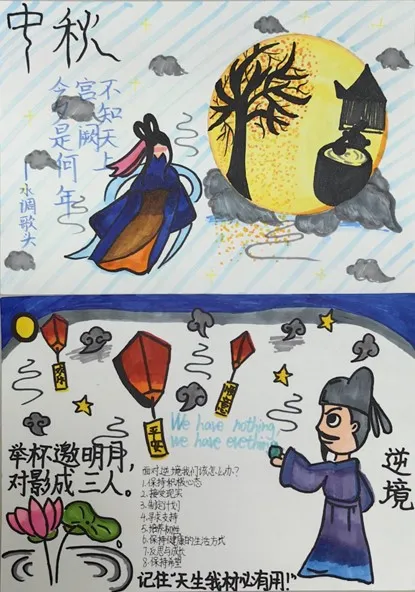 中秋
不知天上
宫阙
今夕是何年
——水调歌头
平安
We have nothing,
we have evething
举杯邀明月,
对影成三人。
逆境
面对逆境我们该怎么办?
1.保持积极心态
2.接受现实
3.制定计划
4.寻求支持
5.培养韧性
6.保持健康的生活方式
7.反思与成长
8.保持希望
记住"天生我材必有用!"